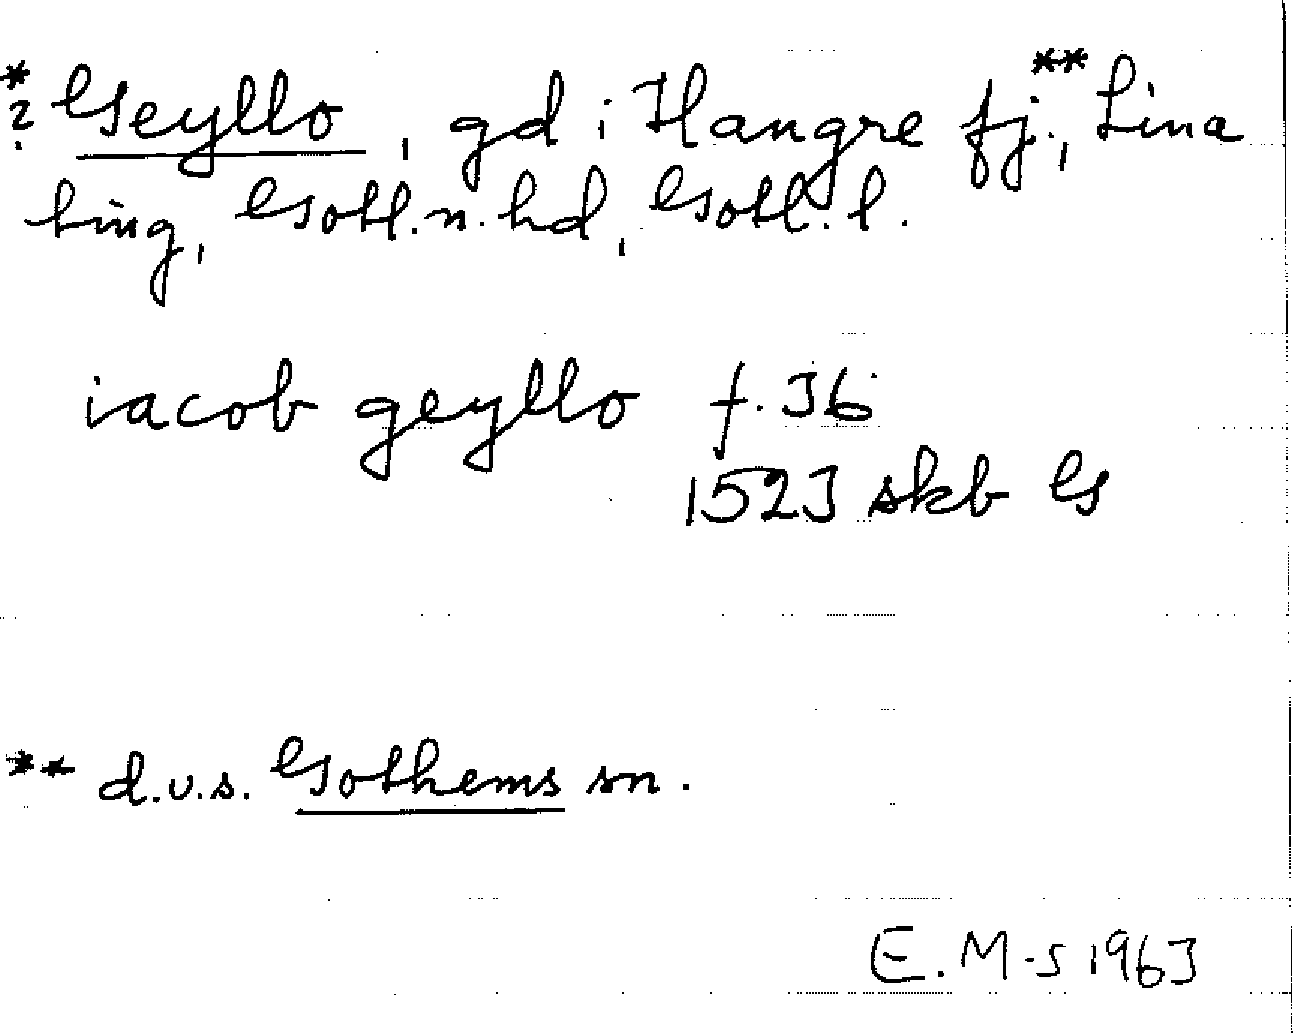 *? Geyllo, gd i Hangre fj.,** Lina
ting, Gotl. n. hd, Gotl. l.
iacob geyllo f. 36
1523 skb G
** d.v.s. Gothems sn.
E. M-s 1963